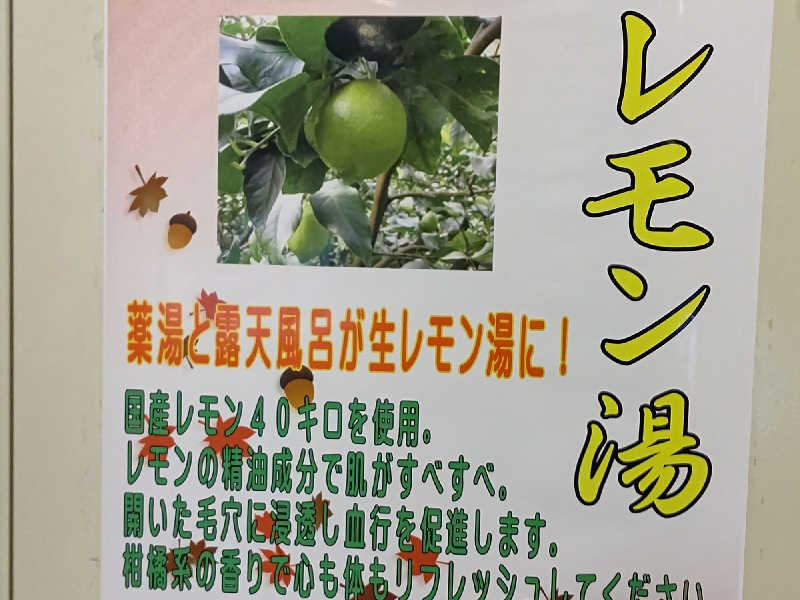 レモン湯
薬湯と露天風呂が生レモン湯に！
国産レモン４０キロを使用。
レモンの精油成分で肌がすべすべ。
開いた毛穴に浸透し血行を促進します。
柑橘系の香りで心も体もリフレッシュしてください